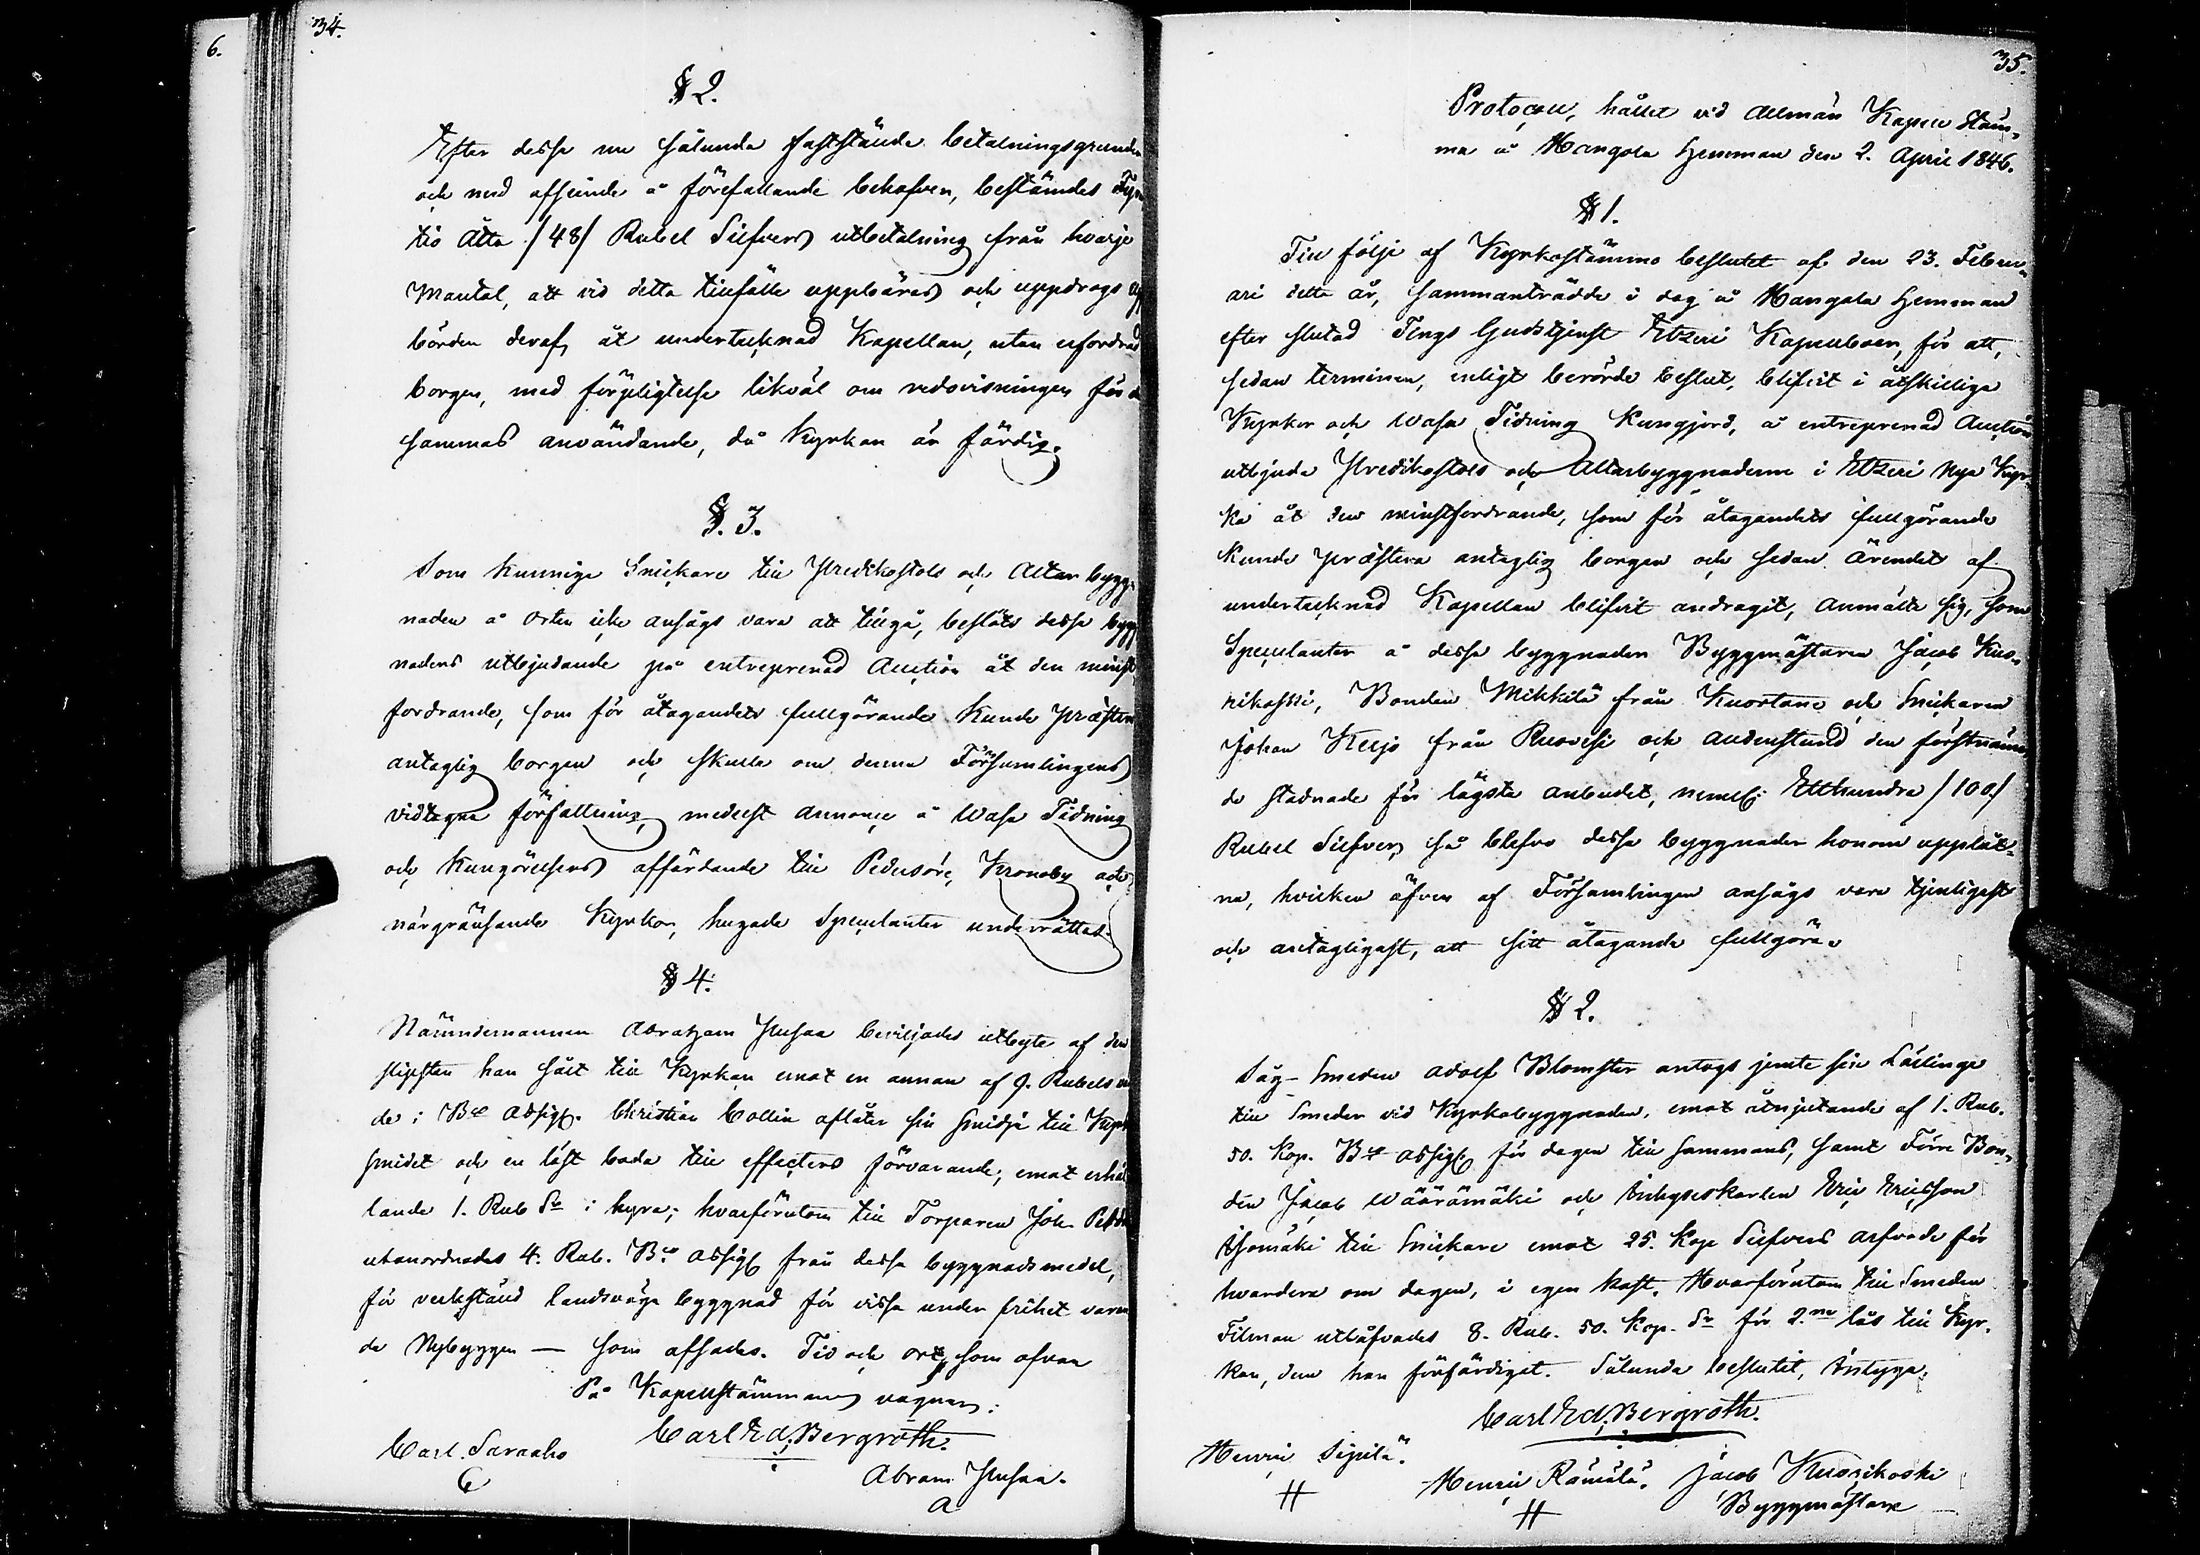 6.
34.
§ 2.
Efter dessa nu sålunda faststäude betalningsgrunder
och med afseende å förefallande behofven, bestämdes Fyra
tio Åtta /48/ Rubel Silfvers utbetalning från hvarje
Mantal, att vid detta tillfälle uppbäras och uppdrogs upp
börden deraf åt undertecknad Kapellan, utan ufordrad
borgen, med förpligtelse likväl om redovisningen för de
sammas användande, då Kyrkan är färdig.
§. 3.
Som kunnige Snickare till Predikostols och Altar bygg
naden å orten icke ansågs vara att tillgå, beslöts dessa bygg
naders utbjudande på entreprenad Auction åt den minst
fordrande, som för åtagandets fullgörande kunde præstera
antaglig borgen och skulle om denna Församlingens
vidtagna författning, medelst Annonce i Wasa Tidning
och Kungörelsens affärdande till Pedersöre, Kronoby och
närgränsande Kyrkor, hugade Speculanter underrättas.
§ 4.
Nämndemannen Abraham Pusaa beviljades utbyte af den
slipsten han sålt till Kyrkan emot en annan af 9. Rubels
de i Bco Assign. Christian Collin aflåter sin smidja till Kyrk
smidet och en låst boda till effecters förvarande, emot erhål
lande 1. Rub Sr i hyra; hvarförutom till Torparen Joh.
utanordnades 4. Rub. Bco Assign från dessa byggnadsmedel,
för verkstäld landsvägs byggnad för vissa under frihet varan
de Nybyggen — som afsades. Tid och ort, som ofvan
På Kapellstämmans vägnar:
Carl Ed. Bergroth.
Carl Saraaho
C
Abram Pusaa.
A
35.
Protocoll, hållet vid Allmän Kapell Stäm,
ma å Hangola Hemman den 2. April 1846.
§ 1.
Till följe af Kyrkostämmo beslutet af den 23. Febru,
ari detta år, sammanträdde i dag å Hangola Hemman
efter slutad Tings Gudstjenst Etseri Kapellboer, för att,
sedan terminen, enligt berörde beslut, blifvit i åtskillige
Kyrkor och Wasa Tidning Kungjord, å entreprenad Auction
utbjuda Predikostols och Altarbyggnaderne i Etseri nya Kyr-
ka åt den minstfordrande, som för åtagandets fullgörande
kunde præstera antaglig borgen och sedan ärendet af
undertecknad Kapellan blifvit andragit, anmälte sig, som
Speculanter å dessa byggnader Byggmästaren Jacob Kuo,
rikoski, Bonden Mikkilä från Kuortane och Snickaren
Johan Keijo från Ruovesi och andenstund den förstnämn
de stadnade för lägsta anbudet, nemlig Etthundra /100/
Rubel Silfver, så blefvo dessa byggnader honom upplåt-
na, hvilken äfven af Församlingen ansågs vara tjenligast
och antagligast, att sitt åtagande fullgöra.
§ 2.
Såg-Smeden Adolf Blomster antogs jemte sin Lärlinge
till Smeder vid Kyrkobyggnaden, emot åtnjutande af 1. Rub.
50. Kop. Bco Assign för dagen till sammans, samt Förre Bon,
den Jacob Wäärämäki och Inhyseskarlen Eric Ericsson
Isomäki till Snickare emot 25. Kop Silfvers arfvode för
hvardera om dagen, i egen kost. Hvarförutom till Smeden
Filman utlåfvades 8. Rub. 50. Kop. Sr för 2.ne lås till Kyr,
kan, dem han förfärdigat. Sålunda beslutit, Intyga:
Carl Ed. Bergroth.
Henric Sipilä.
Henric Rämälä. Jacob Kuorikoski
Byggmästare